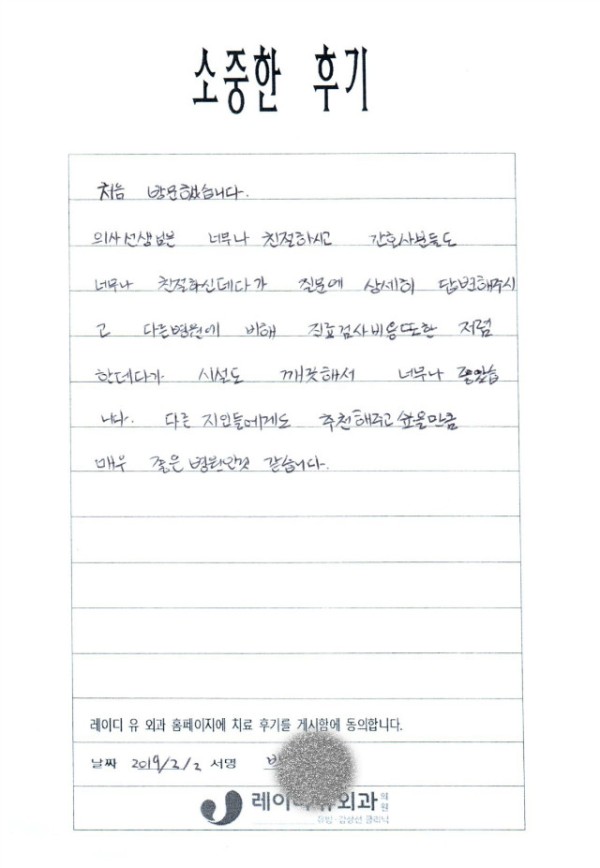 소중한 후기
처음 방문했습니다.
의사선생님은 너무나 친절하시고 간호사분들도
너무나 친절하신데다가 질문에 상세히 답변해주시
고 다른병원에 비해 진료검사비용또한 저렴
한데다가 시설도 깨끗해서 너무나 좋았습
니다. 다른 지인들에게도 추천해주고 싶을만큼
매우 좋은 병원인것 같습니다.
레이디 유 외과 홈페이지에 치료 후기를 게시함에 동의합니다.
날짜 2019/2/2 서명
레이디유외과 의원
유방·갑상선 클리닉